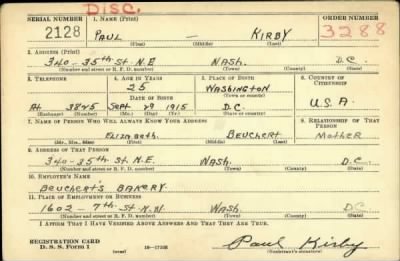 Disc.
SERIAL NUMBER 1. NAME (Print) ORDER NUMBER
2128 PAUL — KIRBY 3288
(First) (Middle) (Last)
2. ADDRESS (Print)
340-35th St. N.E. WASH. D.C.
(Number and street or R. F. D. number) (Town) (County) (State)
3. TELEPHONE 4. AGE IN YEARS 5. PLACE OF BIRTH 6. COUNTRY OF CITIZENSHIP
25 WASHINGTON
DATE OF BIRTH (Town or county)
At 3845 Sept 29 1915 D.C. U.S.A.
(Exchange) (Number) (Mo.) (Day) (Yr.) (State or country)
7. NAME OF PERSON WHO WILL ALWAYS KNOW YOUR ADDRESS 8. RELATIONSHIP OF THAT PERSON
ELIZABETH BEUCHERT Mother
(Mr., Mrs., Miss) (First) (Middle) (Last)
9. ADDRESS OF THAT PERSON
340-35th St. N.E. WASH. D.C.
(Number and street or R. F. D. number) (Town) (County) (State)
10. EMPLOYER'S NAME
BEUCHERT'S BAKERY.
11. PLACE OF EMPLOYMENT OR BUSINESS
1602 - 7th St. N.W. WASH. D.C.
(Number and street or R. F. D. number) (Town) (County) (State)
I AFFIRM THAT I HAVE VERIFIED ABOVE ANSWERS AND THAT THEY ARE TRUE.
REGISTRATION CARD
D. S. S. Form 1 (over) Paul Kirby
(Registrant's signature)